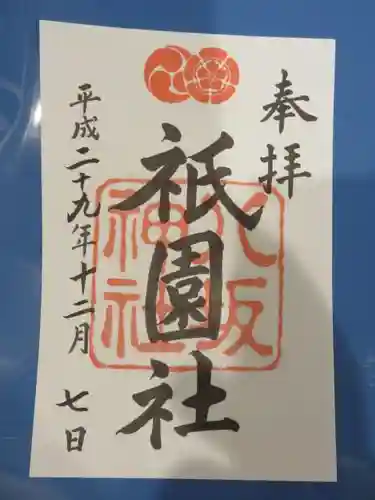 奉拝
祇園社
八坂
神社
平成二十九年十二月七日